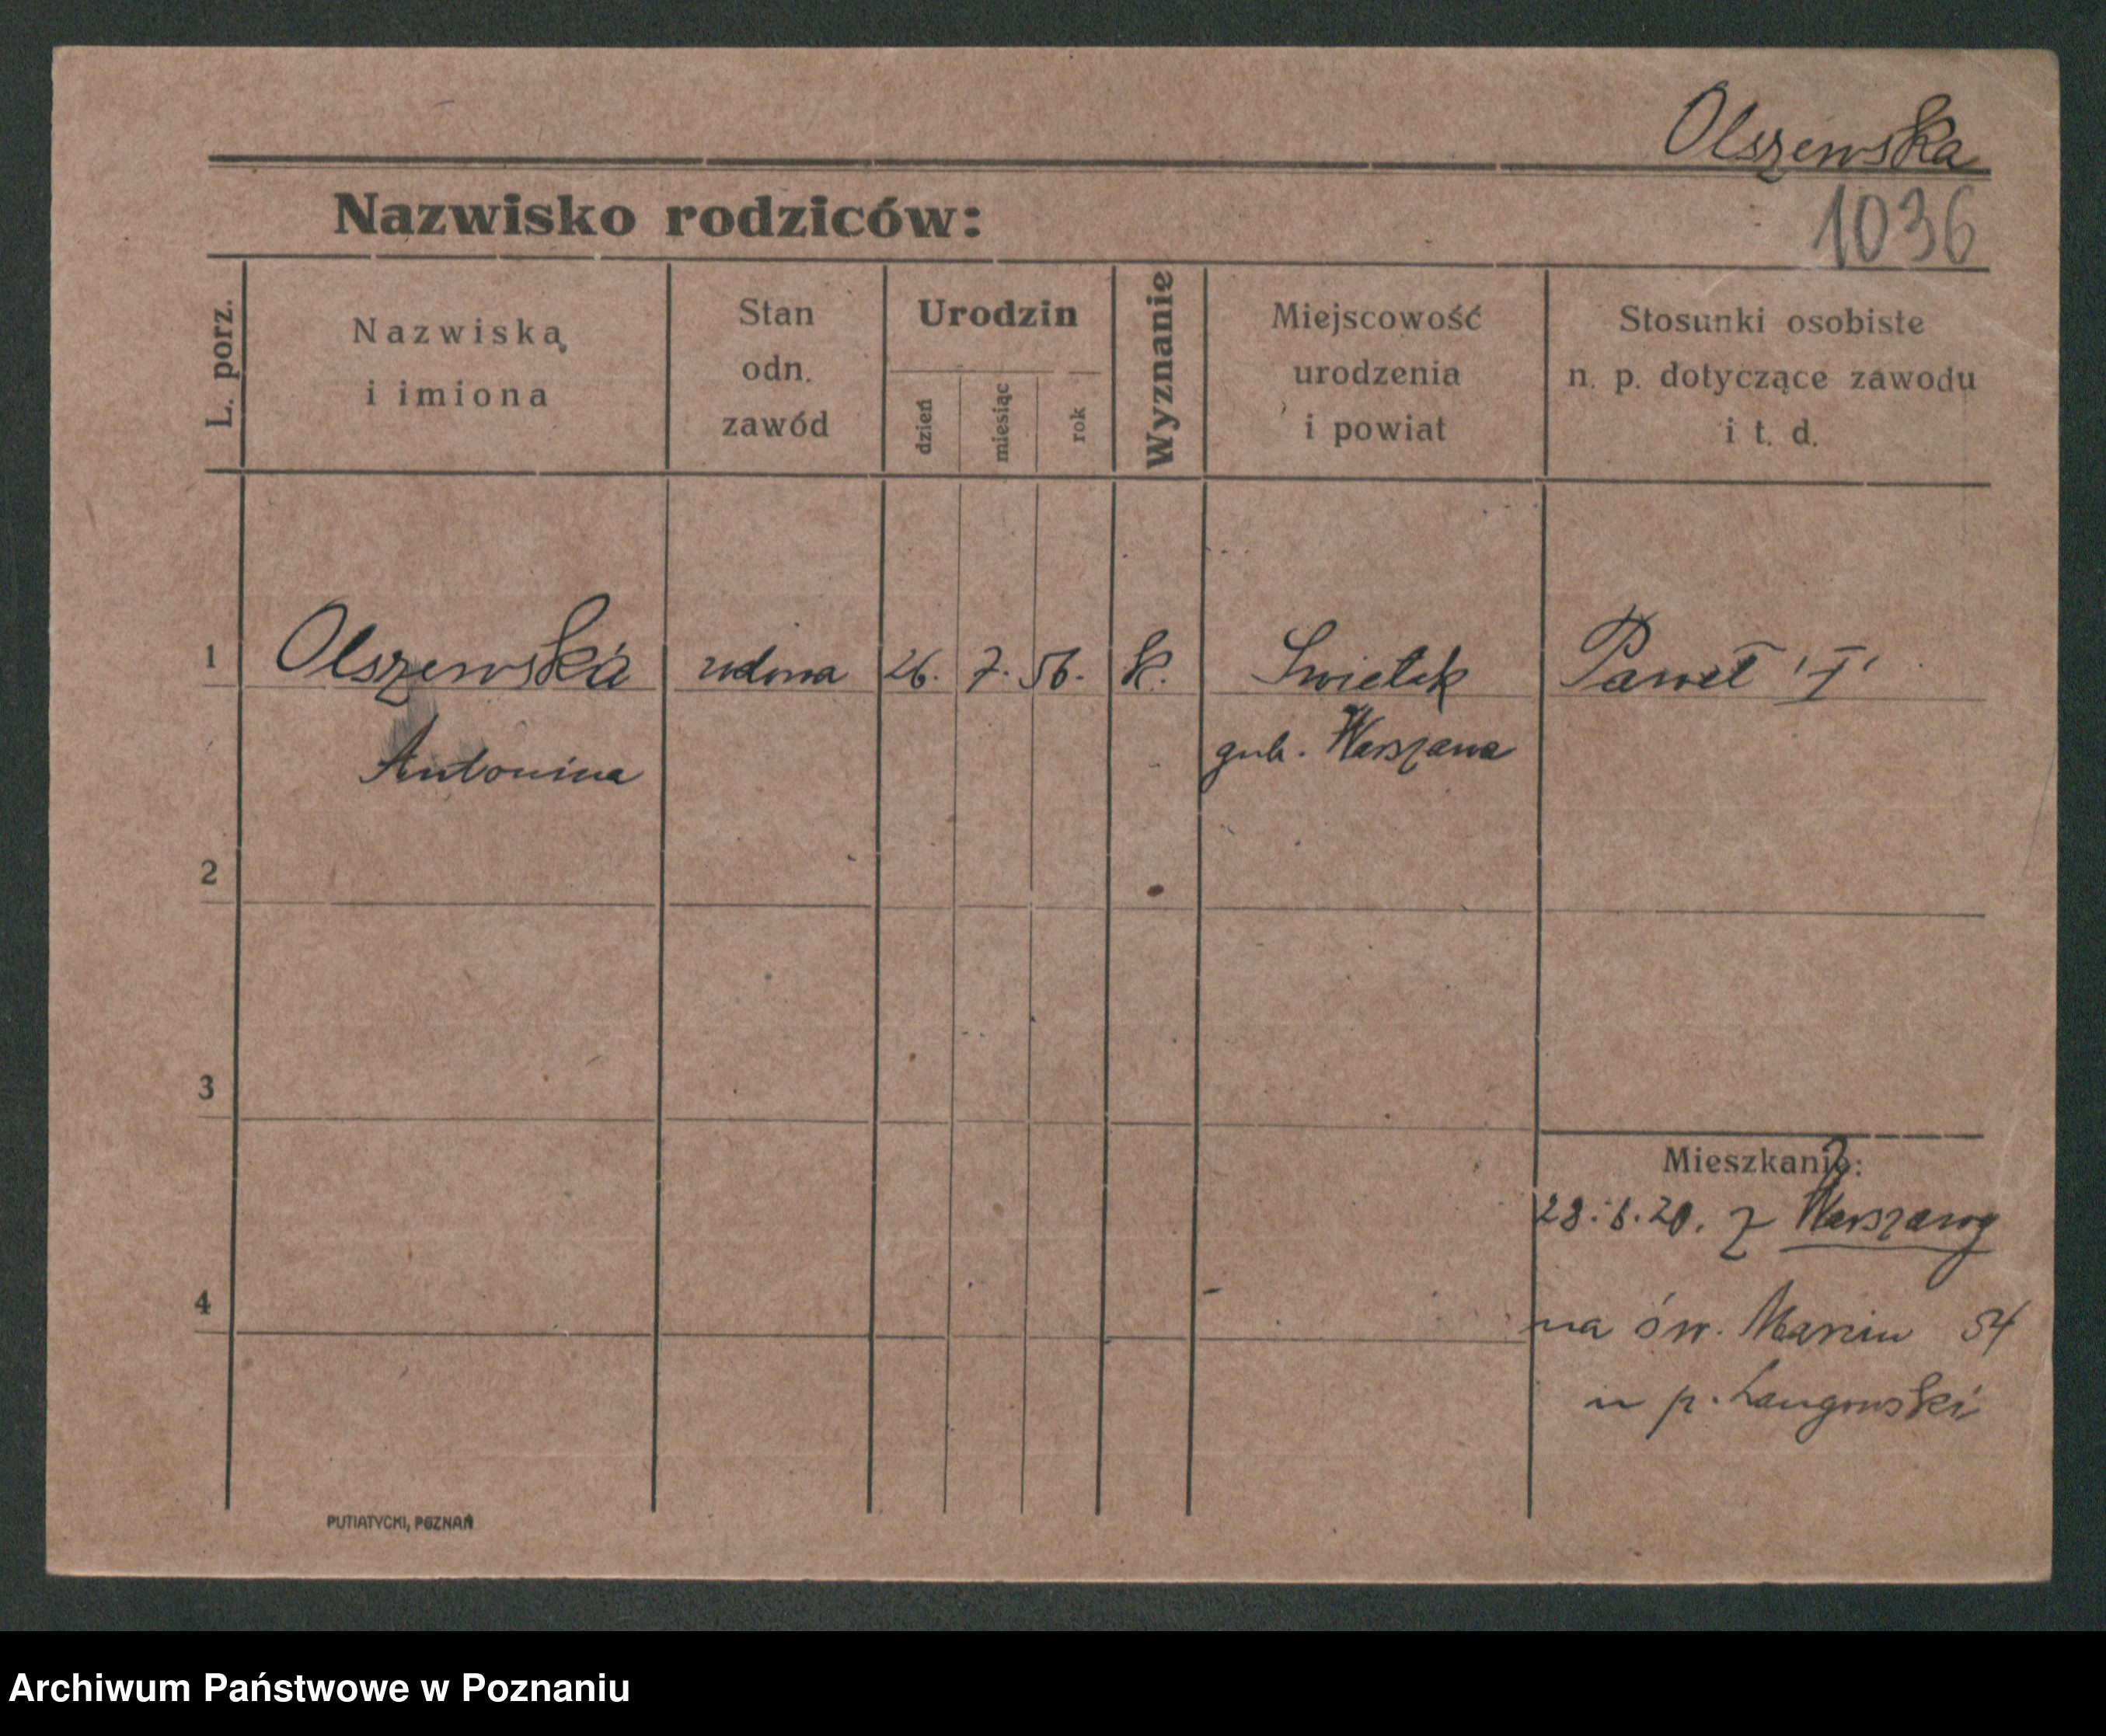 Olszewska
Nazwisko rodziców:
1036
L. porz.
Nazwiska
i imiona
Stan
odn.
zawód
Urodzin
dzień
miesiąc
rok
Wyznanie
Miejscowość
urodzenia
i powiat
Stosunki osobiste
n. p. dotyczące zawodu
i t. d.
1 Olszewska wdowa 26. 7. 56. k. Swietek Paweł
Antonina gub. Warszawa
2
3
Mieszkanie:
28. 6. 20. z Warszawy
4
na św. Marcin 54
u p. Langowski
PUTIATYCKI, POZNAŃ
Archiwum Państwowe w Poznaniu